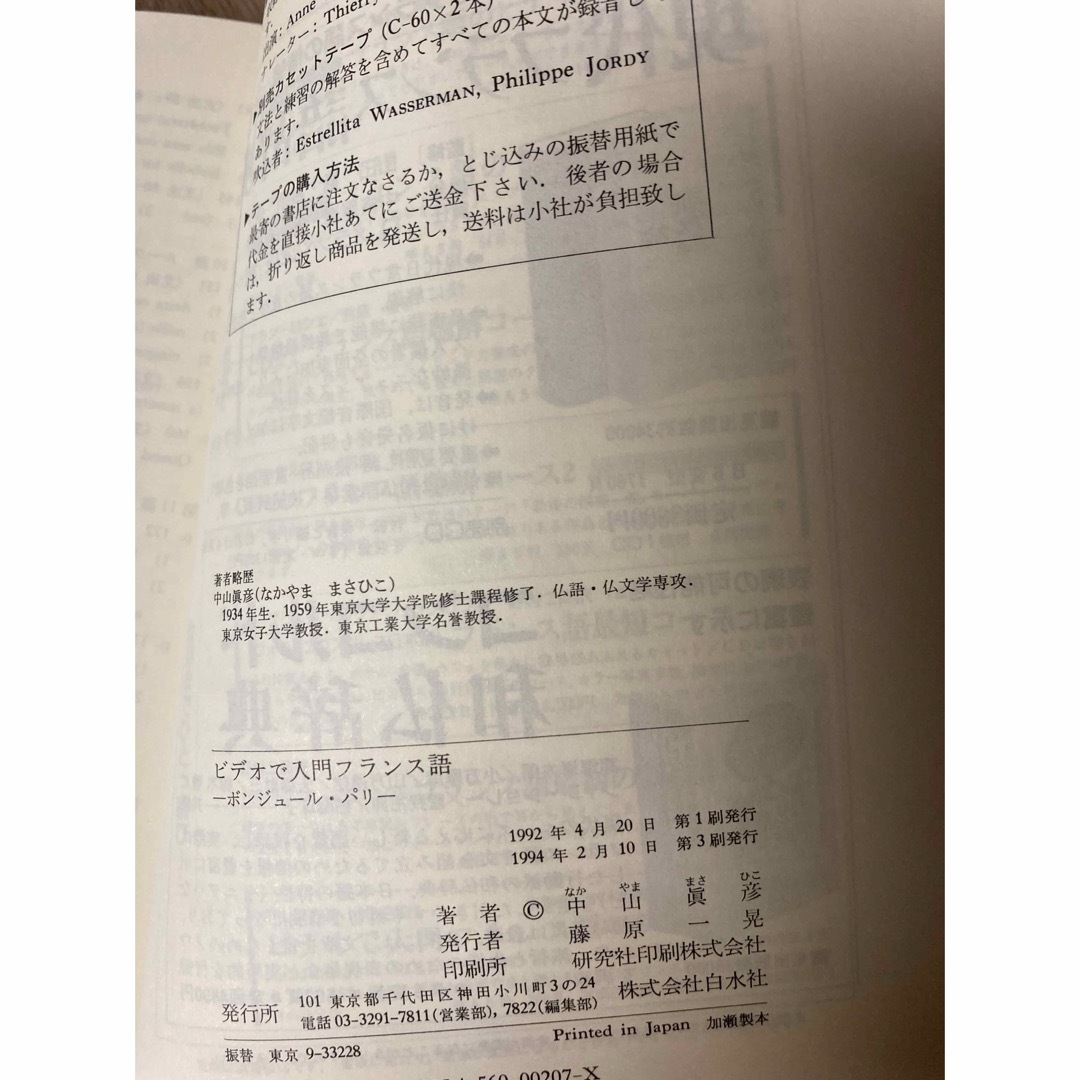 出演：Anne
ナレーター：Thierry
▶別売カセットテープ (C-60×2本)
文法と練習の解答を含めてすべての本文が録音して
あります．
吹込者：Estrellita WASSERMAN, Philippe JORDY
▶テープの購入方法
最寄の書店に注文なさるか，とじ込みの振替用紙で
代金を直接小社あてにご送金下さい．後者の場合
は，折り返し商品を発送し，送料は小社が負担致し
ます．
著者略歴
中山眞彦(なかやま まさひこ)
1934年生．1959年東京大学大学院修士課程修了．仏語・仏文学専攻．
東京女子大学教授．東京工業大学名誉教授．
ビデオで入門フランス語
—ボンジュール・パリ—
1992 年 4 月 20 日 第 1 刷発行
1994 年 2 月 10 日 第 3 刷発行
なか やま まさ ひこ
著 者 © 中 山 眞 彦
発行者 藤 原 一 晃
印刷所 研究社印刷株式会社
発行所 101 東京都千代田区神田小川町3の24 株式会社白水社
電話 03-3291-7811(営業部), 7822(編集部)
振替 東京 9-33228 Printed in Japan 加瀬製本
560-00207-X